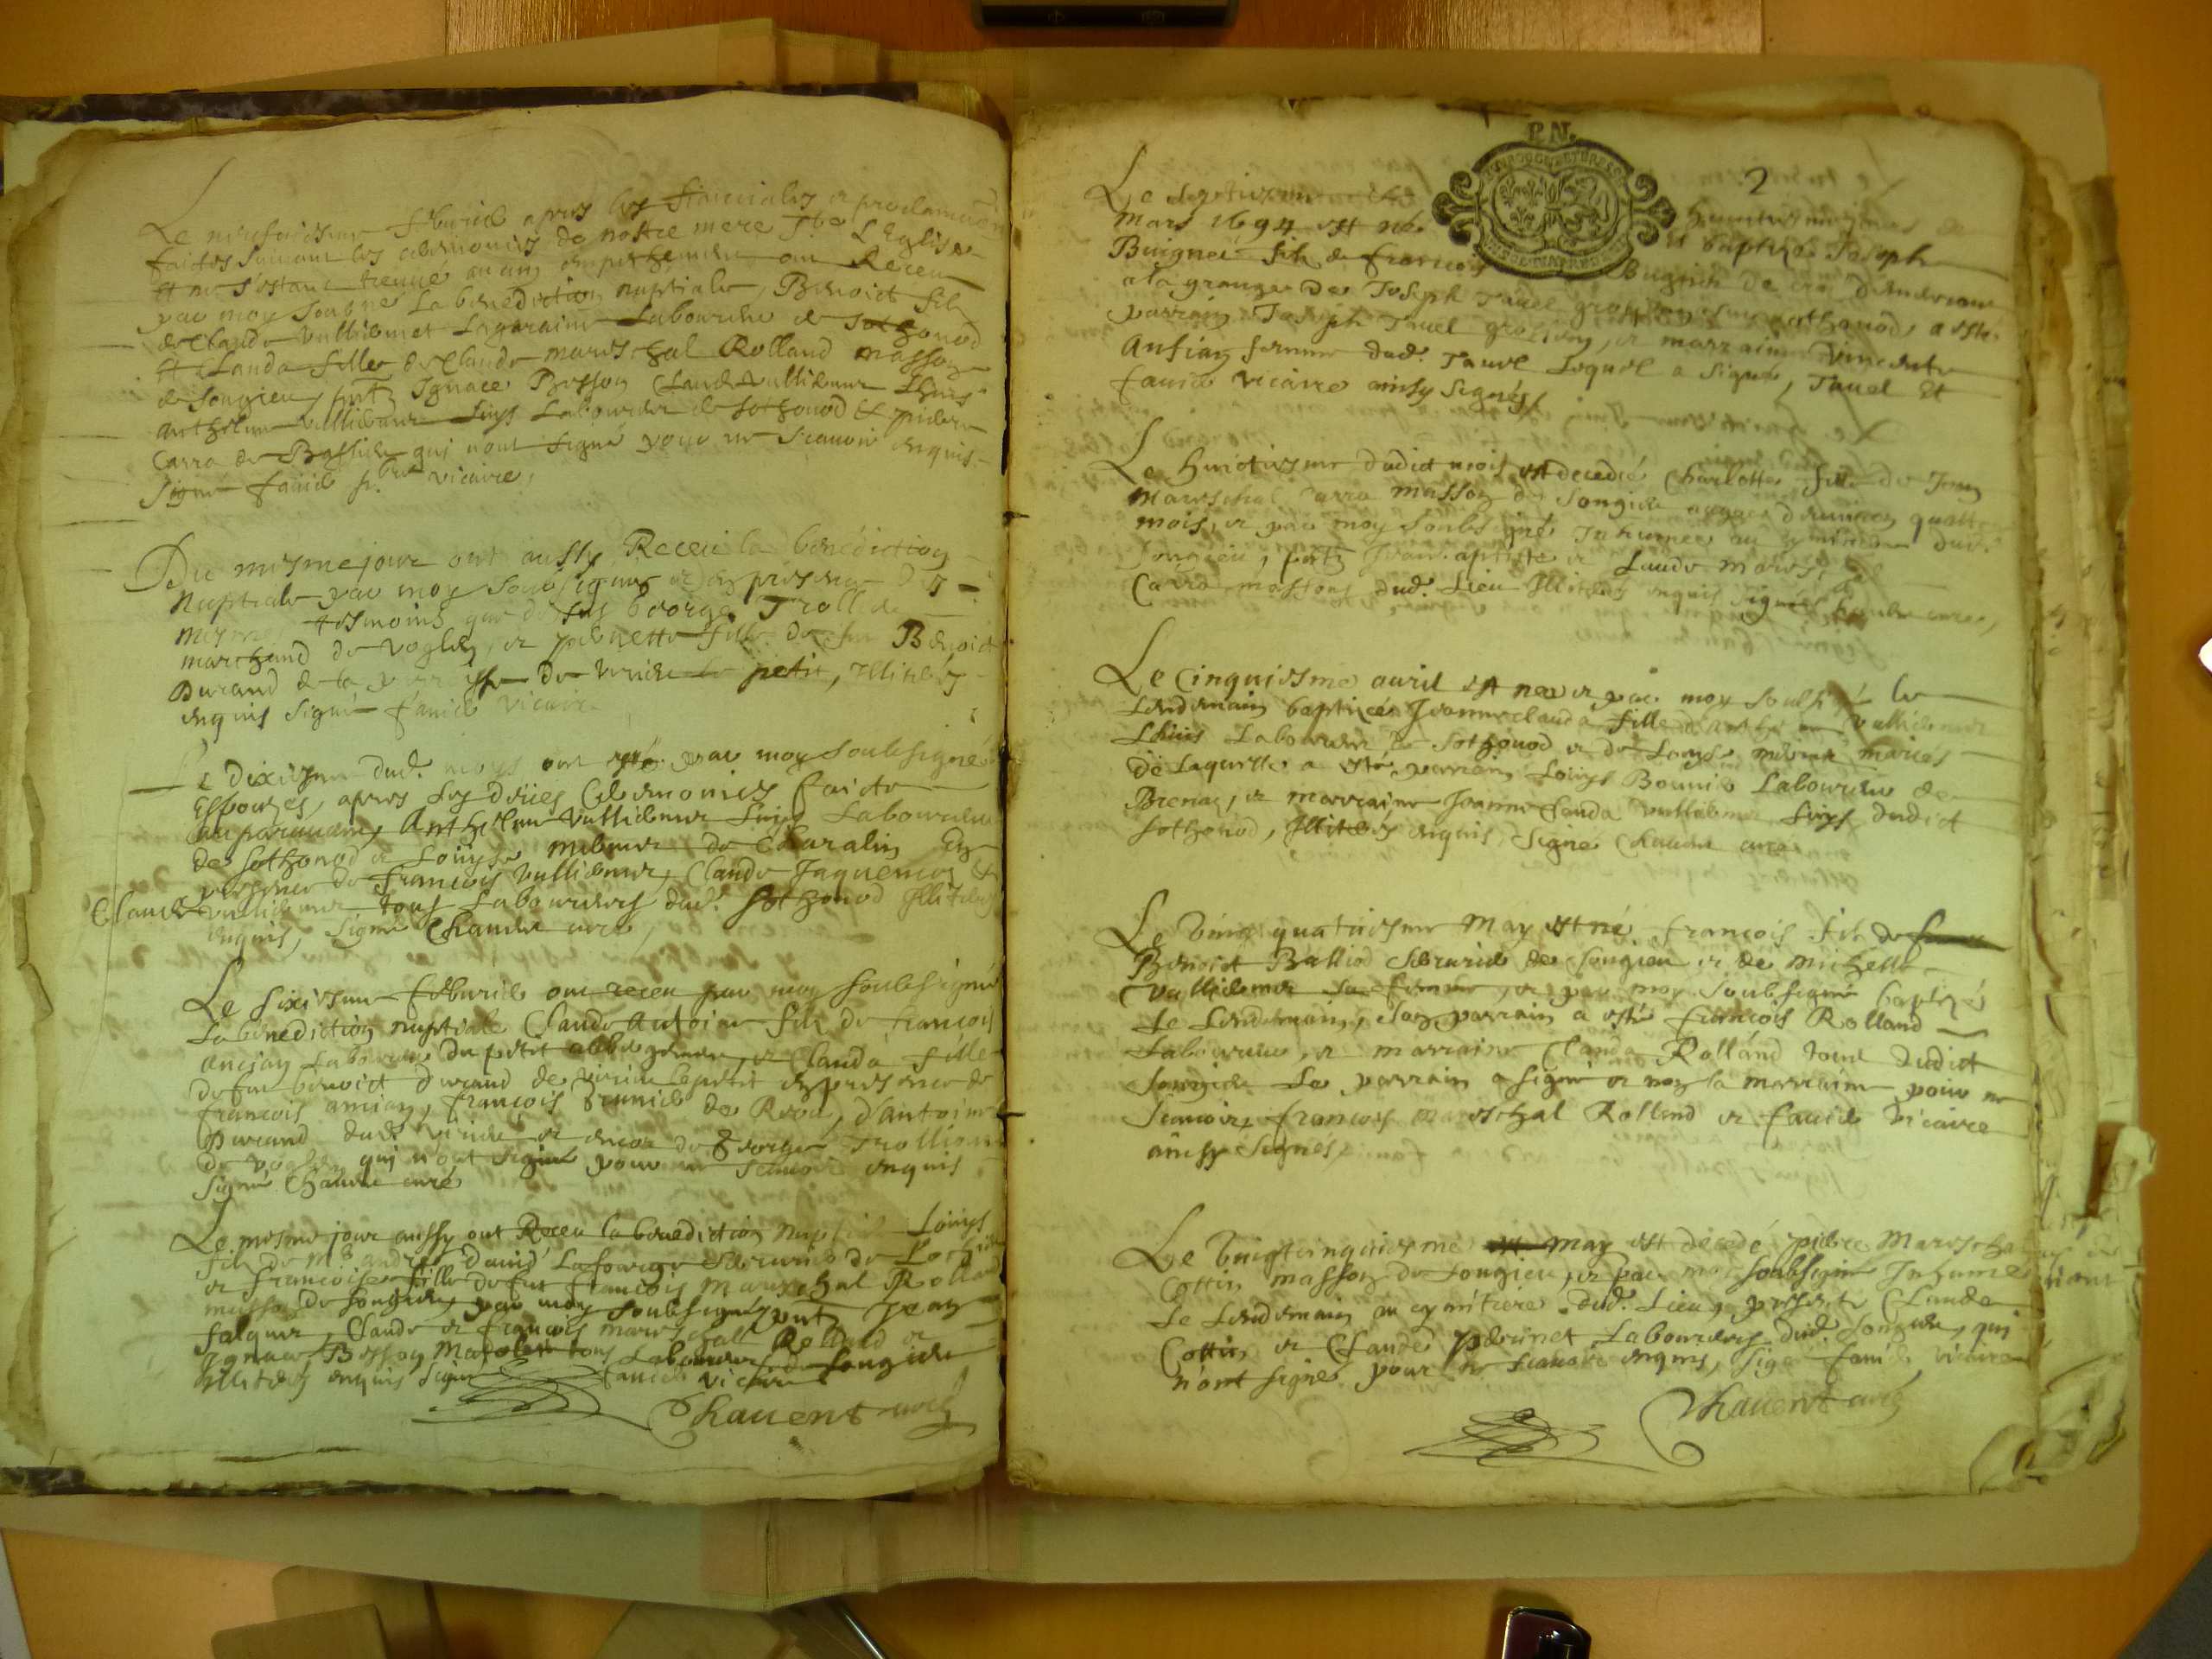 Le neufviesme febvrier apres les fiancialles et proclamaons
faites suivant les ceremonies de nostre mere Ste L'Eglise
et ne s'estant treuvé aucun empeschement ont Receu
par moy soubné La benediction nuptiale, Benoict fils
de Claude Vulliemet Laboureur de Sothonod
et Clauda fille de Claude mareschal Rolland masson
de Songieu, pnts Ignace Besson Claude Vulliemet Lhuis
Anthelme Vulliemet Luys Laboureur de Sothonod Et pierre
Carra de Bassieu qui nont signé pour ne scavoir enquis
Signé favié pbre vicaire,
Du mesme jour ont aussy Receu la benediction
Nuptiale par moy soubsigné et en presence des
mesmes tesmoins que dessus George Trollie
marchand de Voglen, et pernette fille de feu Benoict
Durand de la parroisse de Virieu le petit, Illiterés
enquis Signé favié vicaire
Le dixiesme dud. moys ont esté par moy soubsigné
Espousés, apres les deües Ceremonies faicte
auparavant, Anthelme Vulliemet Luys Laboureur
de Sothonod et Louyse de Charalin En
presence de François Vulliemet, Claude Jaquemet Et
Claude Vulliemet tous Laboureurs dud. Sothonod Illiterés
enquis, Signé Chavent curé,
Le sixiesme febvrier ont receu par moy soubsigné
La benediction nuptiale Claude Antoine fils de François
ancian Laboureur du petit abbergement et Clauda fille
de feu benoict durand de Virieu le petit en presence de
françois ancian, françois de , d'antoine
Durand dud. Virieu et encor de George Trollie
de Voglen qui n'ont signé pour ne scavoir enquis
Signé Chavent curé
Le mesme jour aussy ont Receu la benediction nuptiale Louys
fils de Mre andré david Laforge de Lochieu
et francoise fille de feu francois mareschal Rolland
masson de Songieu, par moy soubsigné, pnts Jean
falquet, Claude et françois mareschall Rolland et
Ignace Besson tous Laboureurs de Songieu
Illiterés enquis Signé favié vicaire
Chavent curé
P.N.
2
Le septiesme huictiesme jour de
Mars 1694 est né et baptizé Joseph
Buignet fils de francois Bugnet de d'Andrieux
a la grange de Joseph Tavel Sothonod, a esté
parrain Joseph Tavel et marraine Vincente
Ansian femme dud. Tavel Lequel a signé, Tavel Et
favié vicaire ainsy signés,
Le huictiesme dudict mois est decedée Charlotte fille de Jean
mareschal Carra masson de Songieu aagée d'environ quatre
mois, et par moy soubsigné Inhumée au cymetiere dud.
Songieu, pnts Jean baptiste et Claude mareschal
Carra massons dud. Lieu Illiterés enquis signé Chavent curé,
Le cinquiesme avril est née et par moy soubsigné le
Lendemain baptizée Jeanneclauda fille d'anthelme Vulliemet
Lhuis Laboureur de Sothonod et de Louyse mariés
De laquelle a esté parrain Louys Laboureur de
Brenaz, et marraine Jeanne Clauda Vulliemet Luys dudict
Sothonod, Illiterés enquis, Signé Chavent curé
Le vingt quatriesme May est né françois fils de
Benoict Balliod de Songieu et de michelle
Vulliemet sa femme, et par moy soubsigné baptizé
Le Lendemain, son parrain a esté françois Rolland
Laboureur, et marraine Clauda Rolland tous dudict
Songieu Le parrain a signé et non la marraine pour ne
scavoir, francois mareschal Rolland et favié vicaire
ainsy signés,
Le vingtcinquiesme may est decedé pierre Mareschal
Cottin masson de Songieu, et par moy soubsigné Inhumé
Le Lendemain au cymetiere dud. Lieu, presents Claude
Cottin et Claude perinet Laboureurs dud. Songieu, qui
n'ont signé pour ne scavoir enquis, signé favié vicaire
Chavent curé